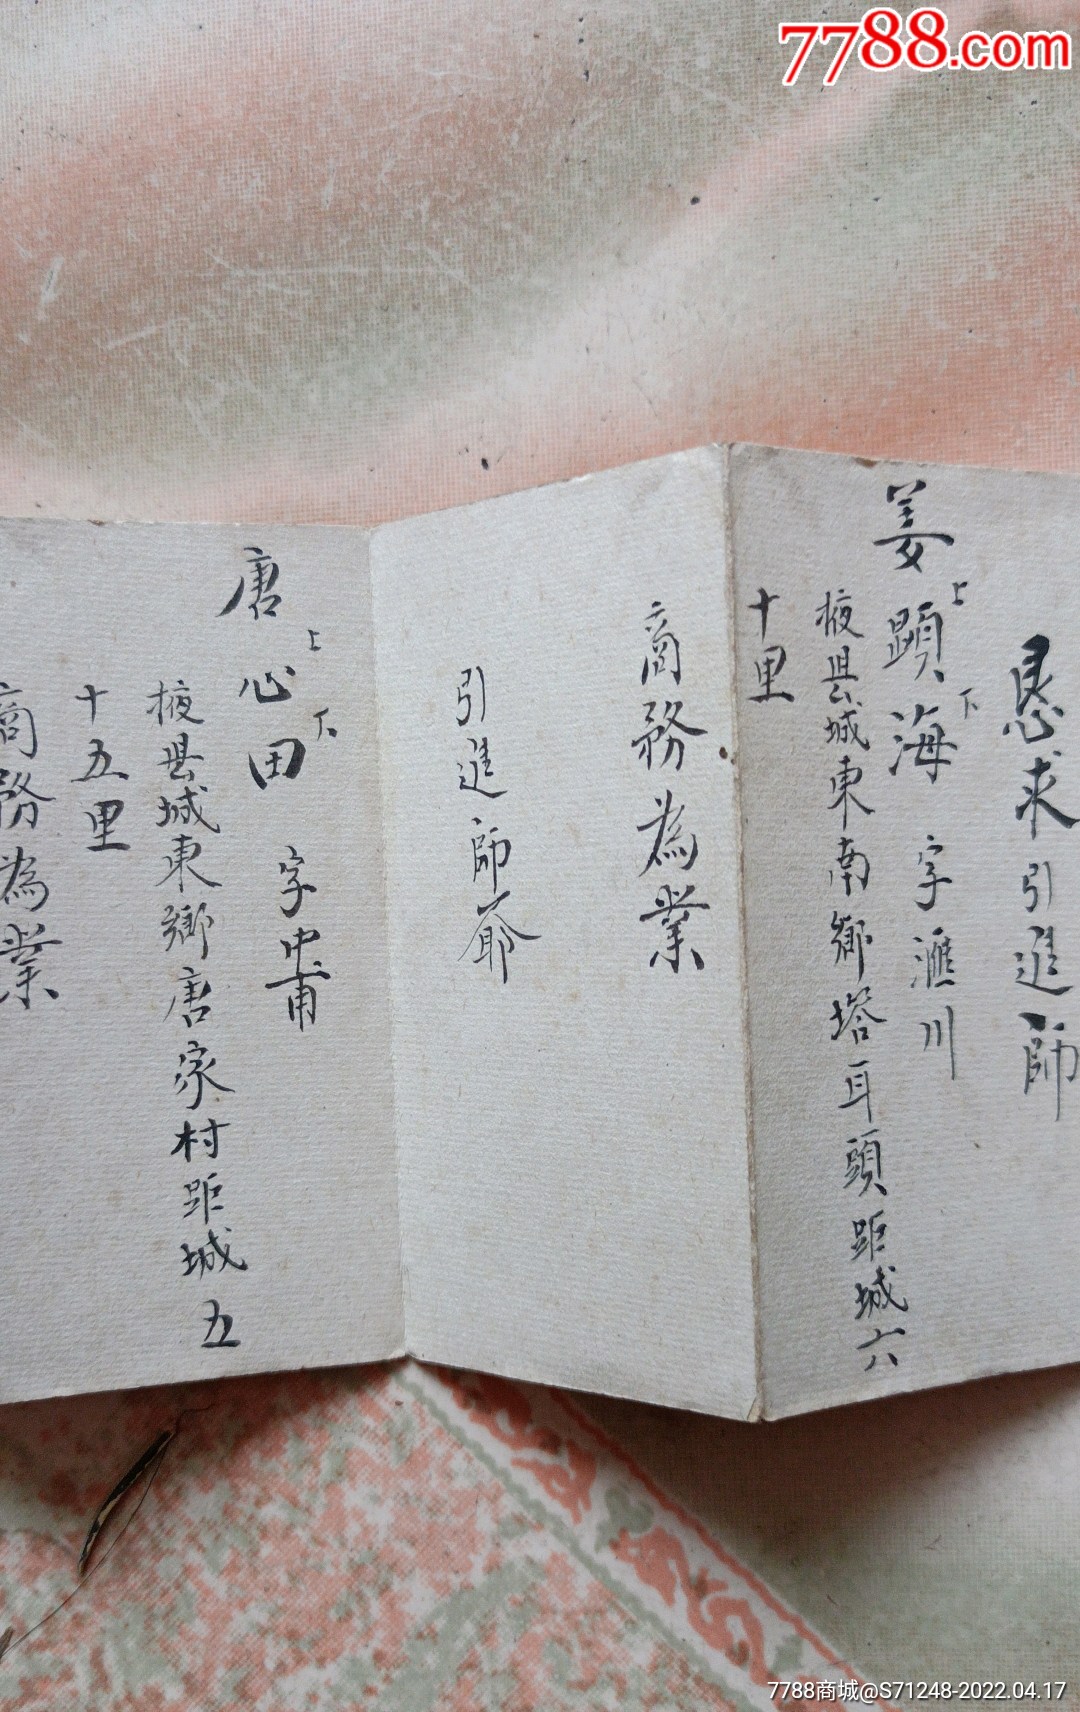 7788.com
懇求引進師
姜上顕下海 字滙川
掖县城東南鄉塔耳頭距城六
十里
商務為業
引進師爺
唐上心下田 字忠甫
掖县城東鄉唐家村距城五
十五里
商務為業
7788商城@S71248-2022.04.17